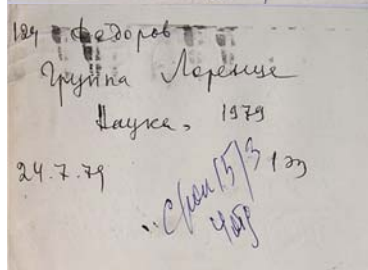 Федоров
Группа Лоренца
Наука, 1979
24.7.79 1 эз